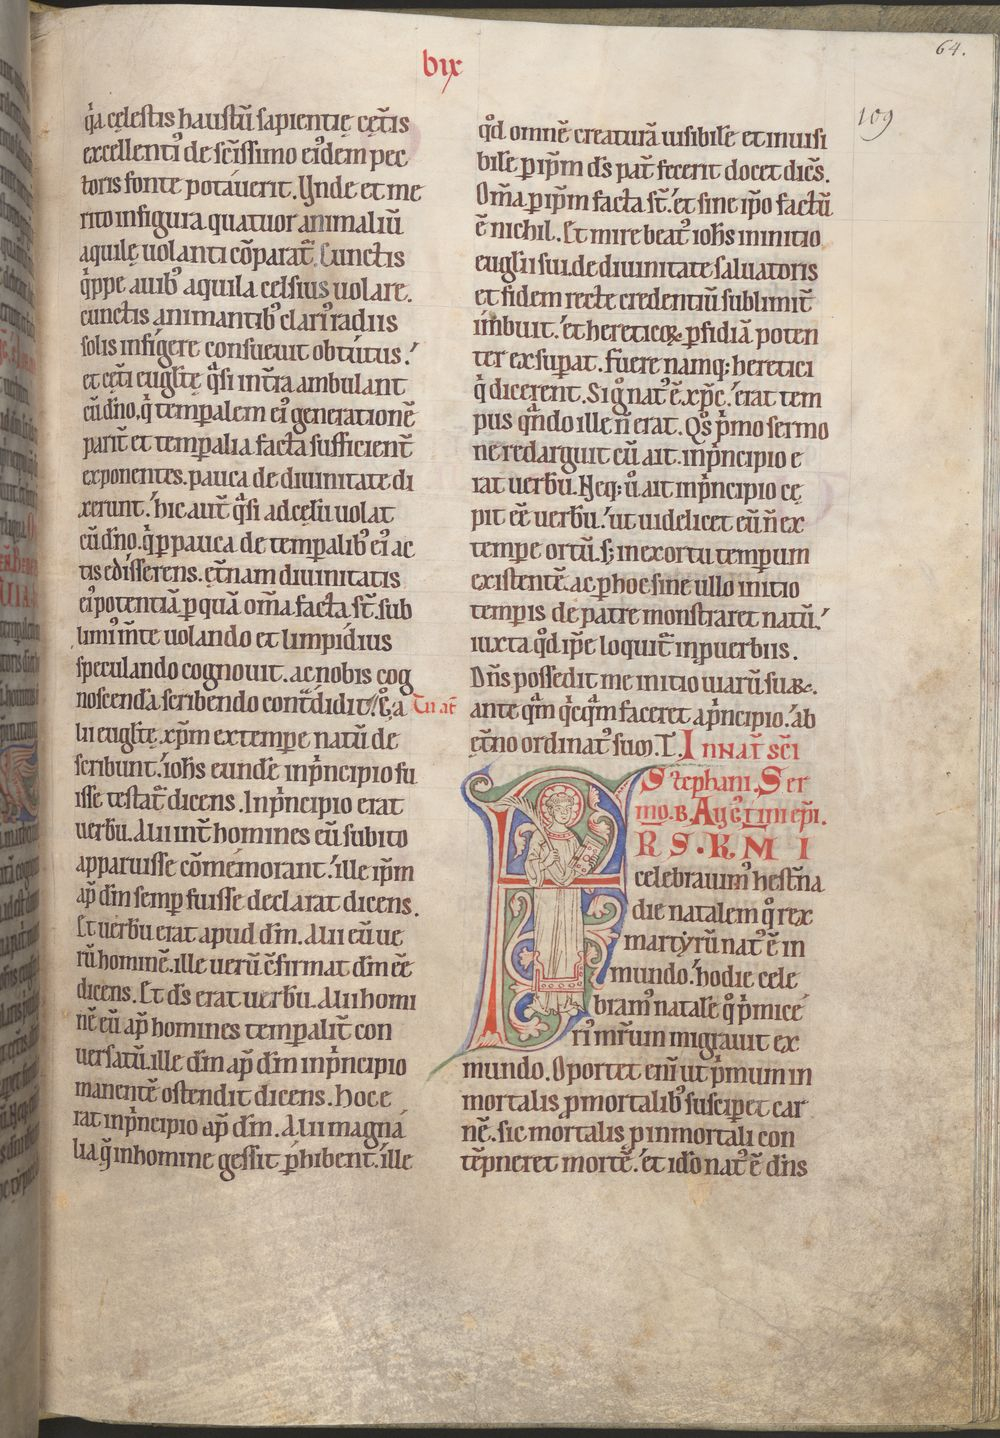 bıx
64.
109
q̓a cęlestis haustū sapientię cęt̄is
excellenti᾽ de sc̄issimo ei᾽dem pec
toris fonte potáuerit. Vnde et me
rito in figura quatuor animaliū
aquilę uolanti cōparat᷑. Cunctis
q̓ppe auib᾽ aquila celsius uolare.
cunctis animantib᾽ clari᾽ radiis
solis infigere consueuit obtútus.᾽
et cęt̄i eugl̄tę q̓si in t̄ra ambulant
cū dn̄o, q̓ temꝑalem ei᾽ generationē
parit̄ et temꝑalia facta sufficient̄
exponentes. pauca de diuinitate di
xerunt.᾽ hic aut̄ q̓si ad cęlū uolat
cū dn̄o. q̓ ꝑpauca de temꝑalib᾽ ei᾽ ac
tis edísserens. ęt̄nam diuinitatis
ei᾽ potentiā ꝑ quā om̄a facta st̄. sub
limi᾽ m̄te uolando et limpidius
speculando cognouit. ac nobis cog
noscenda scribendo contᷓdidit. S; a
lii eugl̄tę. xp̄m ex tempe natū de
scribunt.᾽ ioh̄s eunde in p̓ncipio fu
isse testat᷑ dicens. In p̓ncipio erat
uerbū. Alii int̄ homines eū subito
apparuisse cōmémorant.᾽ ille ip̄m
ap̄ dm̄ semꝑ fuisse declarat dicens.
Et uerbū erat apud dm̄. Alii eū ue
rū hominē. ille uerū ↄfirmat dm̄ eē
dicens. Et ds̄ erat uerbū. Alii homi
nē eū ap̄ homines temꝑalit̄ con
uersatū. ille dm̄ ap̄ dm̄ in p̓ncipio
manentē ostendit dicens. Hoc e
rat in p̓ncipio ap̄ dm̄. Alii magná
lia q̄ in homine gessit ꝑhibent.᾽ ille
q᾽d omnē creaturā uisibile et inuisi
bile ꝑ ip̄m ds̄ pat̄ fecerit docet dicēs.
Om̄a ꝑ ip̄m facta st̄.᾽ et sine ip̄o factū
ē nichil. Et mire beat᾽ ioh̄s in initio
euglii sui. de diuinitate saluatoris
et fidem recte credentiū sublimit̄
imbuit.᾽ et hereticoꝝ ꝑfidiā poten
ter exsuꝑat. Fuere namq; heretici
q̓ dicerent. Si g᾽ nat᾽ ē xp̄c.᾽ erat tem
pus qᷓndo ille n̄ erat. Q᾽s p̓mo sermo
ne redarguit cū ait. in p̓ncipio e
rat uerbū. Neq; u᾽ ait in p̓ncipio cę
pit eē uerbū.᾽ ut uidelicet eū n̄ ex
tempe ortū. s; in exortu tempum
existentē. ac ꝑ hoc sine ullo initio
tempis de patre monstraret natū.᾽
iuxta q᾽d ip̄e loquit᷑ in ꝓuerbiis.
Dn̄s possedit me in itio uiarū suaꝝ.
ante qᷓm q̓cqᷓm faceret a p̓ncipio.᾽ ab
ęt̄no ordinat᾽ sum. T. In nat̄ sc̄i
Stephani. Ser
mo. B. Aug᾽tini ep̄i.
FRS. KMI
celebrauim᾽ hest̄na
die natalem q᾽ rex
martyrū nat᾽ ē in
mundo.᾽ hodie cele
bram᾽ natale q᾽ p̓micé
ri᾽ mr̄um migrauit ex
mundo. Oportet eni ut p̓mum in
mortalis ꝓ mortalib᾽ susciꝑet car
nē. sic mortalis ꝓ inmortali con
tēpneret mortē.᾽ et id᾽o nat᾽ ē dn̄s